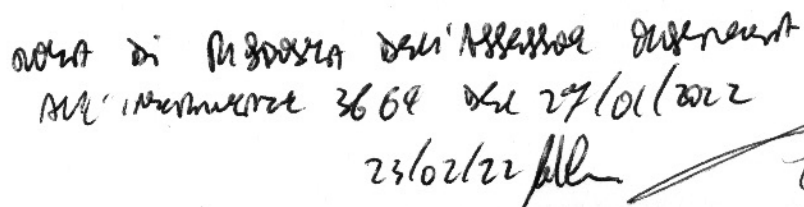 NOTA DI RISPOSTA DELL'ASSESSORE
ALL'INTERPELLANZA 366 DEL 27/01/2022
23/02/22